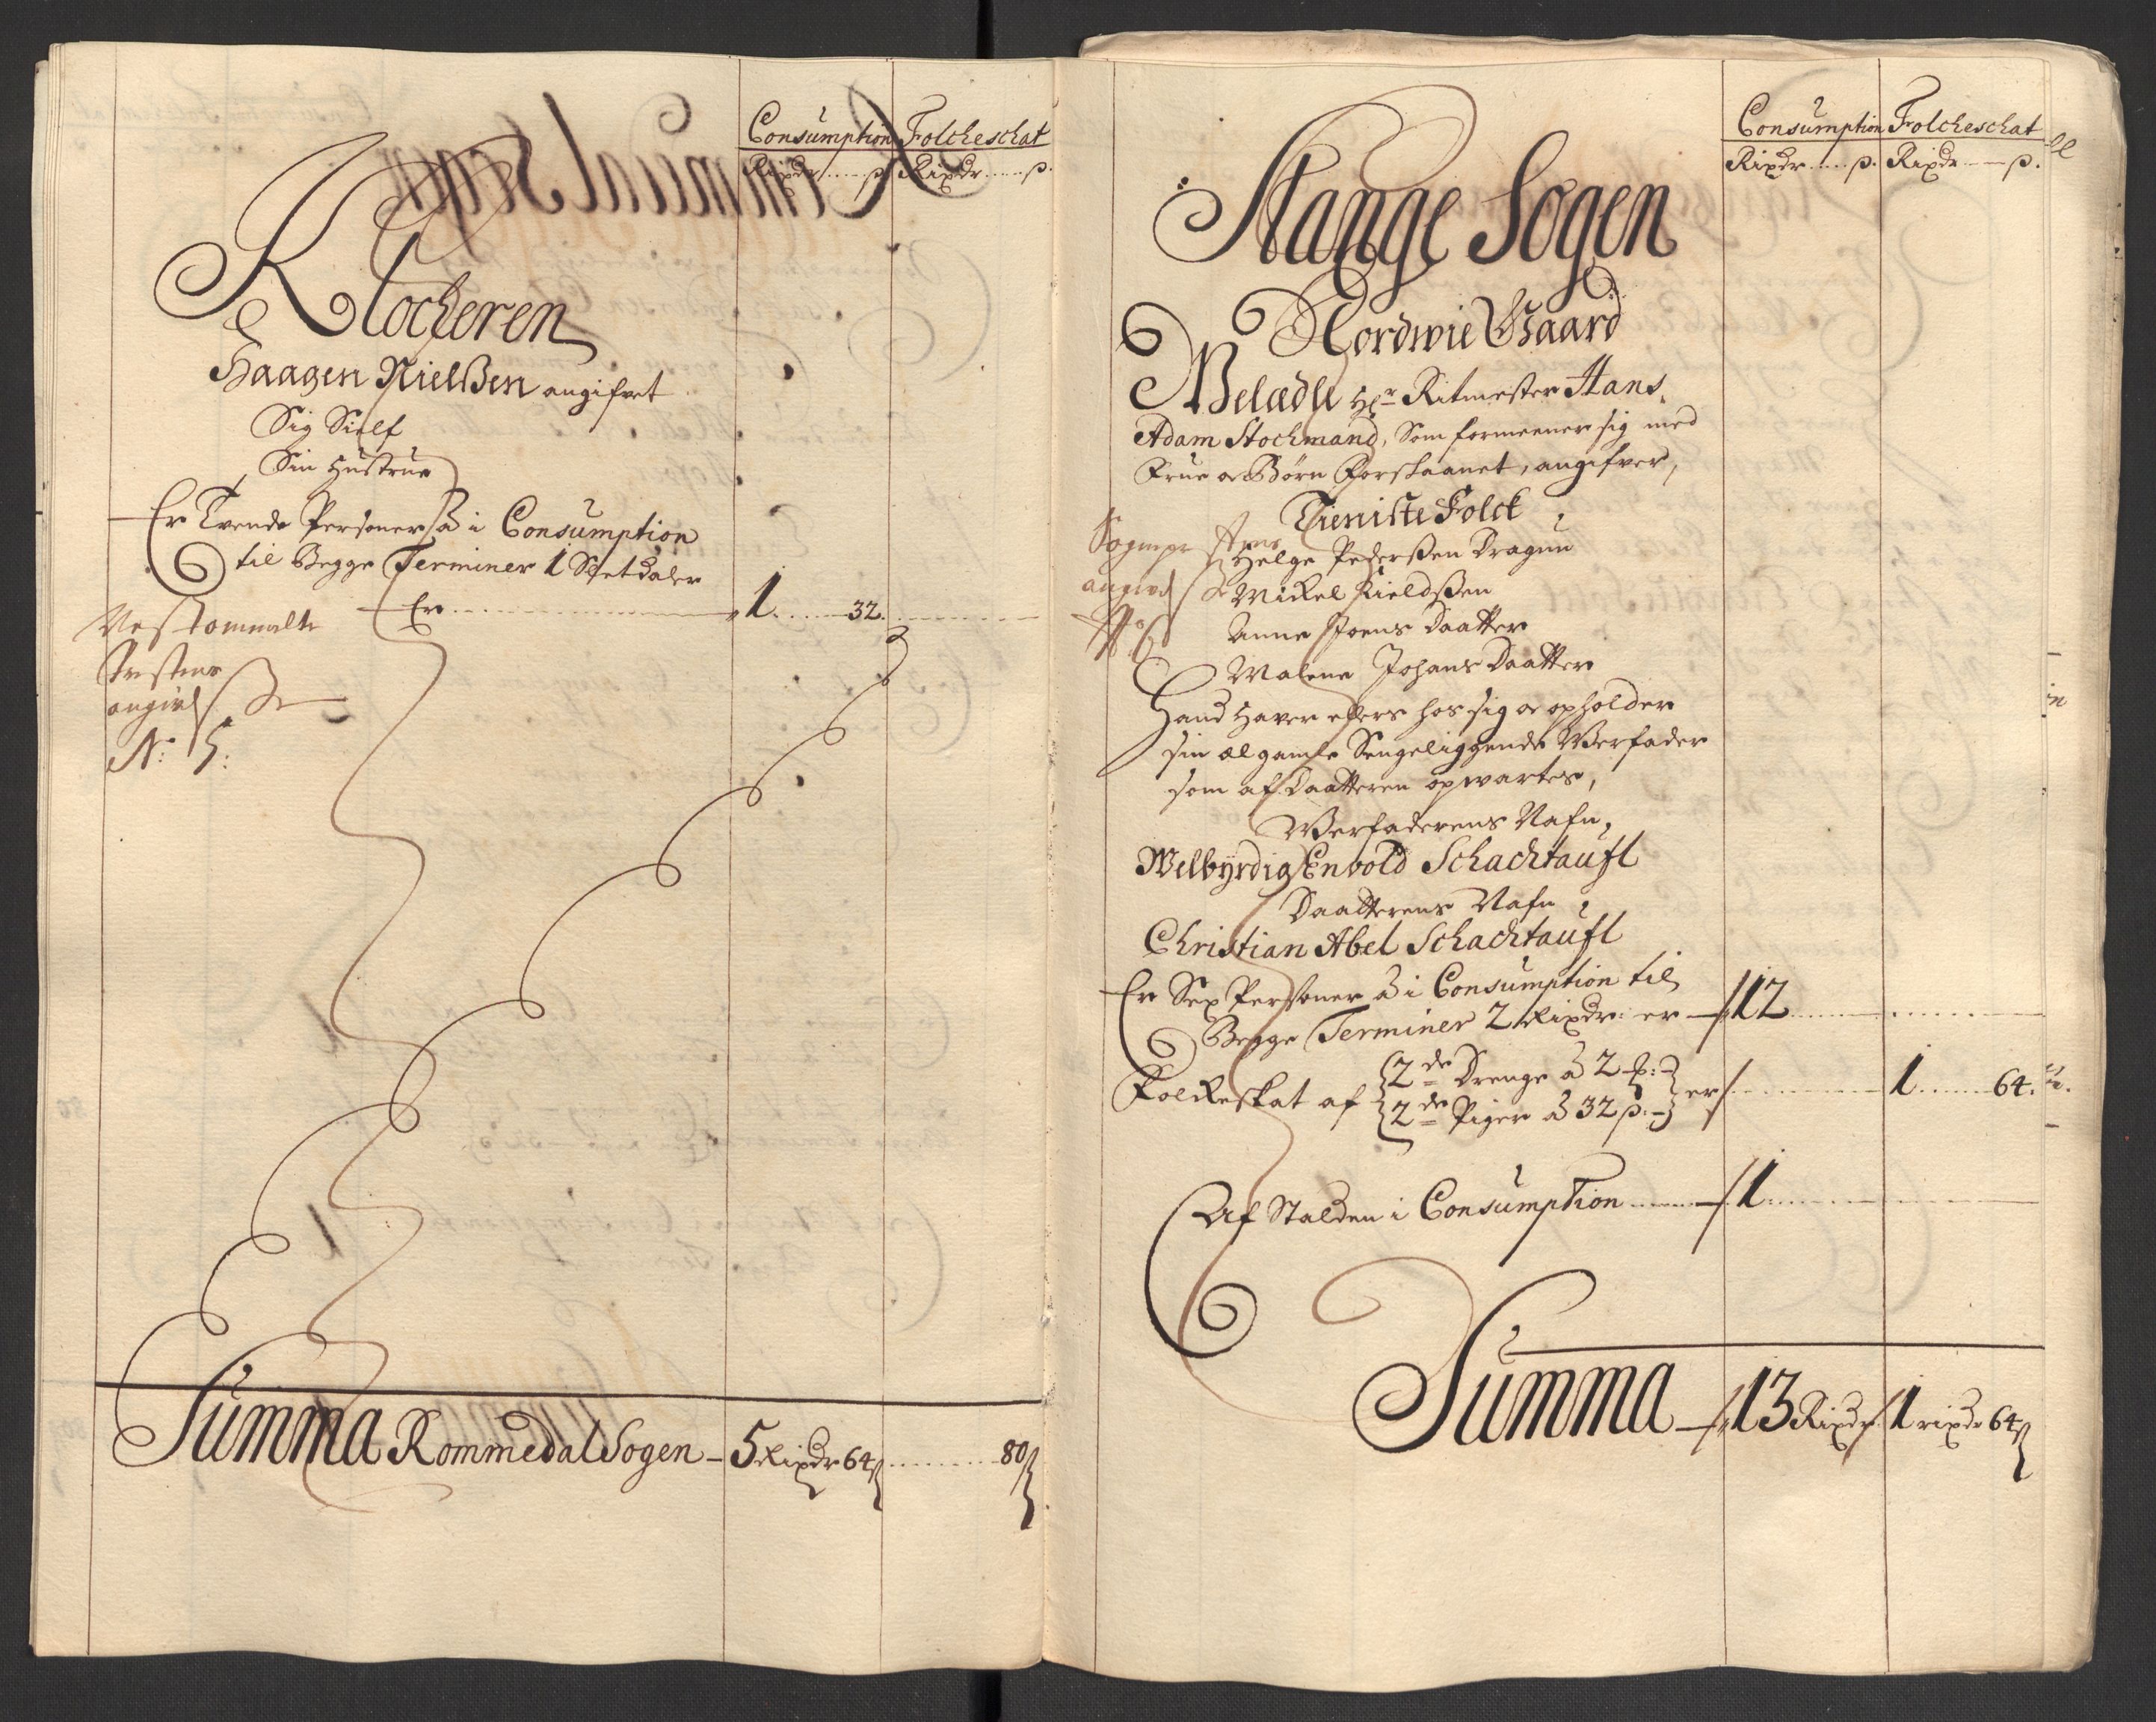 Consumption Folcheschat
Rixdr ..... ß. Rixdr ..... ß.
Klocheren
Haagen Nielßen angifvet
Sig Sielf
Sin Hustrue
Er Tvende Personer à i Consumption
til Begge Terminer 1 Sletdaler
Er ..... 1 ..... 32.
angivelse
No: 5:
Summa Rommedal Sogen – 5 Rixdr 64 ß ..... 80 ß
Consumption Folcheschat
Rixdr ..... ß. Rixdr ..... ß.
Stange Sogen
Nordwie Gaard
Welædle Hr Ritmester Hans
Adam Stochmand, Som formeener sig med
Frue oc Børn Forskaanet, angifver,
Tieniste Folck
Helge Pederßen Dragun
Mickel Kieldßen
Anne Joens Daatter
Malene Johans Daatter
No 6
Hand Hawer ellers hos sig oc opholder
sin æl gamle Sengeliggende Werfader
som af Daatteren opwartes,
Werfaderens Nafn,
Welbyrdig Enwold Schachtaufl
Daatterens Nafn
Christian Abel Schachtaufl
Er Sex Personer à i Consumption til
Begge Terminer 2 Rixdr: er – 12 .....
Folkeskat af 2de Drenge à 2 ß: er ..... 1 ..... 64.
2de Piger à 32 ß: –
Af Stalden i Consumption ..... 1 .....
Summa – 13 Rixdr 1 rixdr 64 ß